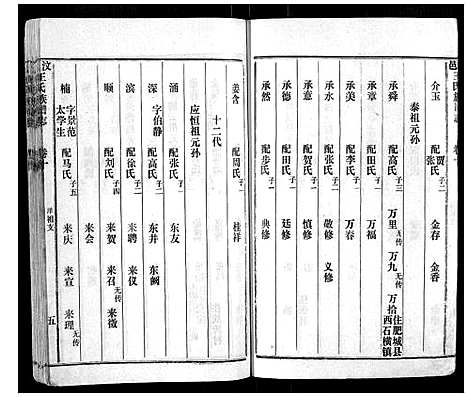 邑王氏族譜
卷十
介玉 配張氏賈氏子二 金存 金香
泰祖元孙
承舜 配高氏子三 万里 万九无传 万拾住肥城县西石横镇
承章 配田氏子一 万福
承美 配李氏子一 万春
承水 配高氏子二 敬修 义修
承意 配贺氏子一 慎修
承德 配田氏子一 廷修
承然 配步氏子一 典修
十二代
姜含 配周氏子一 桂祥
应恒祖元孙
涌 配张氏子一 东友
深 字伯静 配高氏子二 东井 东阙
滨 配徐氏子二 来聘 来仪
顺 配刘氏子四 来贺 来召无传 来徵
来会
楠 字景范 太学生 配马氏子五 来庆 来宣 来理无传
汶王氏族譜
卷十
洋祖支
五